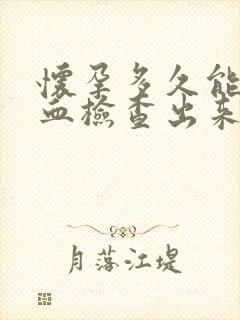 懷孕多久能
血檢查出來
月落江堤